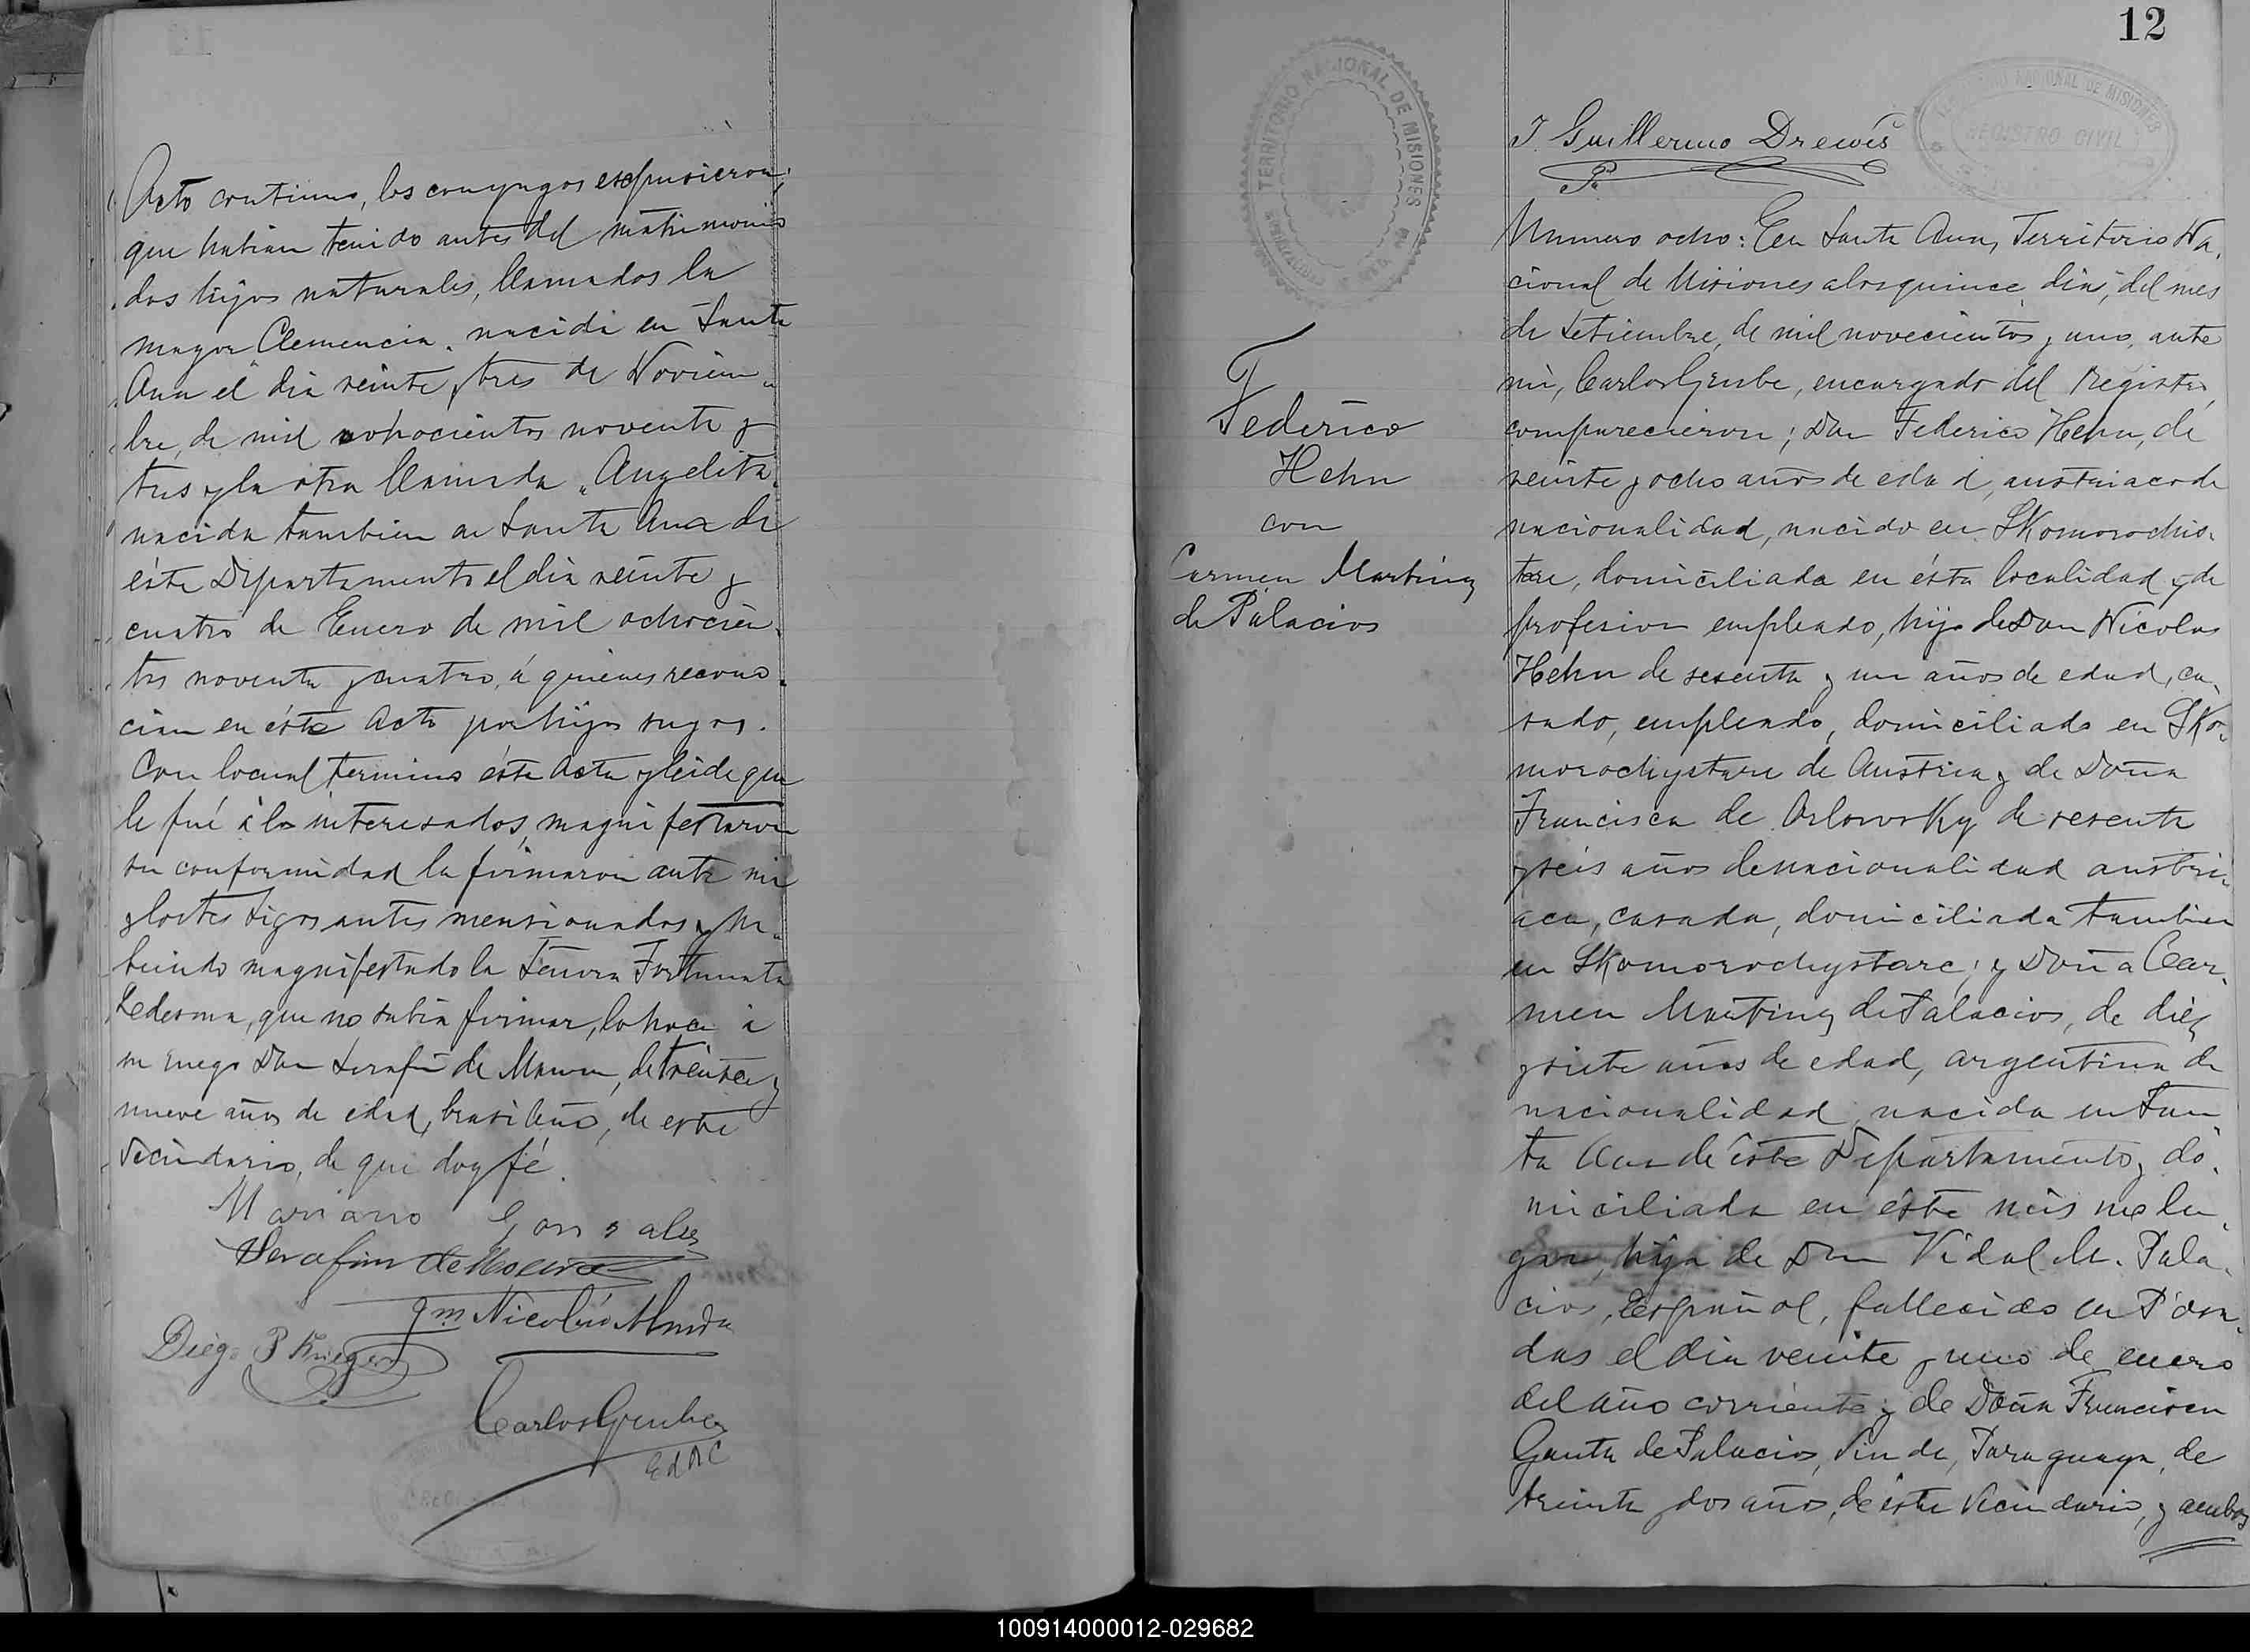 Acto continuo, los conyuges expusieron;
que habian tenido antes del matrimonio
dos hijos naturales, llamados la
mayor "Clemencia" nacida en Santa
Ana el dia veinte y tres de Noviem-
bre, de mil ochocientos noventa y
tres y la otra llamada "Angelita"
nacida tambien en Santa Ana de
éste Departamento el dia veinte y
cuatro de Enero de mil ochocien-
tos noventa y cuatro, á quienes recono-
cian en éste Acto por hijos suyos.
Con lo cual termino ésta Acta y leida que
le fué á los interesados, magnifestaron
su conformidad la firmaron ante mi
y los testigos antes mensionados y ha-
biendo magnifestado la Señora Fortunata
Ledesma, que no sabia firmar, lo hace á
su ruego Don Serafin de Moura, de treinta y
nueve años de edad, brasileño, de este
vecindario, de que doy fé.
Mariano Gonzales
Serafim de Moura
Nicolás Almida
Diego P Krieger
Carlos Grube
E d R C
12
TERRITORIO NACIONAL DE MISIONES
TERRITORIO NACIONAL DE MISIONES
REGISTRO CIVIL
T. Guillermo Drewes
Federico
Hehn
con
Carmen Martinez
de Palacios
Numero ocho: En Santa Ana, Territorio Na-
cional de Misiones a los quince dias, del mes
de Setiembre, de mil novecientos y uno, ante
mi, Carlos Grube, encargado del Registro,
comparecieron; Don Federico Hehn, de
veinte y ocho años de edad, austriaco de
nacionalidad, nacido en SKomorochis-
tare, domiciliada en ésta localidad y de
profesion empleado, hijo de Don Nicolas
Hehn de sesenta y un años de edad, ca-
sado, empleado, domiciliado en SKo-
morochystare de Austria y de Doña
Francisca de OrlowsKy de sesenta
y seis años de nacionalidad austri-
aca, casada, domiciliada tambien
en SKomorochystare; y Doña Car-
men Martinez de Palacios, de diez
y siete años de edad, argentina de
nacionalidad nacida en San-
ta Ana de éste Departamento y do-
miciliada en éste mismo lu-
gar, hija de Don Vidal M. Pala-
cios, Español, fallecido en Posa-
das el dia veinte y uno de enero
del año corriente y de Doña Francisca
Gauta de Palacios, Viuda, Paraguaya, de
treinta y dos años, de éste Vecindario, y ambos
100914000012-029682